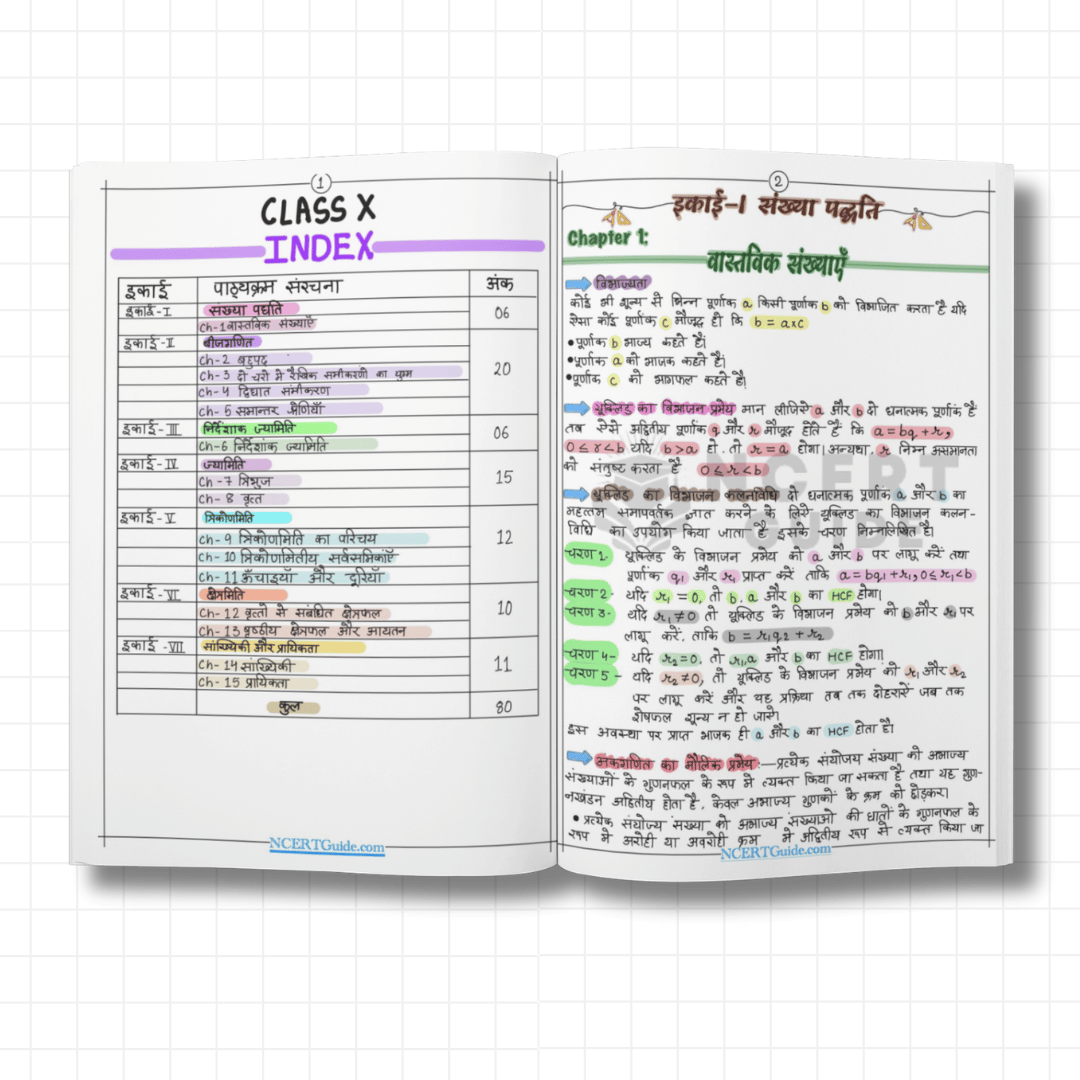 1
CLASS X
INDEX
इकाई पाठ्यक्रम संरचना अंक
इकाई-I संख्या पद्धति 06
Ch-1 वास्तविक संख्याएँ
इकाई-II बीजगणित 20
Ch-2 बहुपद
Ch-3 दो चरों में रैखिक समीकरणों का युग्म
Ch-4 द्विघात समीकरण
Ch-5 समान्तर श्रेणियाँ
इकाई-III निर्देशांक ज्यामिति 06
Ch-6 निर्देशांक ज्यामिति
इकाई-IV ज्यामिति 15
Ch-7 त्रिभुज
Ch-8 वृत्त
इकाई-V त्रिकोणमिति 12
Ch-9 त्रिकोणमिति का परिचय
Ch-10 त्रिकोणमितीय सर्वसमिकाएँ
Ch-11 ऊँचाइयाँ और दूरियाँ
इकाई-VI क्षेत्रमिति 10
Ch-12 वृत्तों से संबंधित क्षेत्रफल
Ch-13 पृष्ठीय क्षेत्रफल और आयतन
इकाई-VII सांख्यिकी और प्रायिकता 11
Ch-14 सांख्यिकी
Ch-15 प्रायिकता
कुल 80
NCERTGuide.com
2
इकाई-1 संख्या पद्धति
Chapter 1:
वास्तविक संख्याएँ
विभाज्यता
कोई भी शून्य से भिन्न पूर्णांक a किसी पूर्णांक b को विभाजित करता है यदि
ऐसा कोई पूर्णांक c मौजूद हो कि b = a×c
•पूर्णांक b भाज्य कहते हैं।
•पूर्णांक a को भाजक कहते हैं।
•पूर्णांक c को भागफल कहते हैं।
यूक्लिड का विभाजन प्रमेय मान लीजिये a और b दो धनात्मक पूर्णांक हैं
तब ऐसे अद्वितीय पूर्णांक q और r मौजूद होते हैं कि a = bq + r,
0 ≤ r < b यदि b > a हो, तो r = a होगा। अन्यथा, r निम्न असमानता
को संतुष्ट करता है 0 ≤ r < b
यूक्लिड का विभाजन कलनविधि दो धनात्मक पूर्णांक a और b का
महत्तम समापवर्तक ज्ञात करने के लिये यूक्लिड का विभाजन कलन-
विधि का उपयोग किया जाता है इसके चरण निम्नलिखित है।
चरण 1- यूक्लिड के विभाजन प्रमेय को a और b पर लागू करें तथा
पूर्णांक q₁ और r₁ प्राप्त करें ताकि a = bq₁ + r₁, 0 ≤ r₁ < b
चरण 2- यदि r₁ = 0, तो b, a और b का HCF होगा।
चरण 3- यदि r₁ ≠ 0 तो यूक्लिड के विभाजन प्रमेय को b और r₁ पर
लागू करें, ताकि b = r₁q₂ + r₂
चरण 4- यदि r₂ = 0, तो r₁, a और b का HCF होगा।
चरण 5- यदि r₂ ≠ 0, तो यूक्लिड के विभाजन प्रमेय को r₁ और r₂
पर लागू करें और यह प्रक्रिया तब तक दोहरायें जब तक
शेषफल शून्य न हो जाये।
इस अवस्था पर प्राप्त भाजक ही a और b का HCF होता है।
अंकगणित का मौलिक प्रमेय:—प्रत्येक संयोजय संख्या को अभाज्य
संख्याओं के गुणनफल के रूप में व्यक्त किया जा सकता है तथा यह गुण-
नखंडन अद्वितीय होता है, केवल अभाज्य गुणकों के क्रम को छोड़कर।
• प्रत्येक संयोज्य संख्या को अभाज्य संख्याओं की घातों के गुणनफल के
रूप में अरोही या अवरोही क्रम में अद्वितीय रूप से व्यक्त किया जा
NCERT
GUIDE
NCERTGuide.com